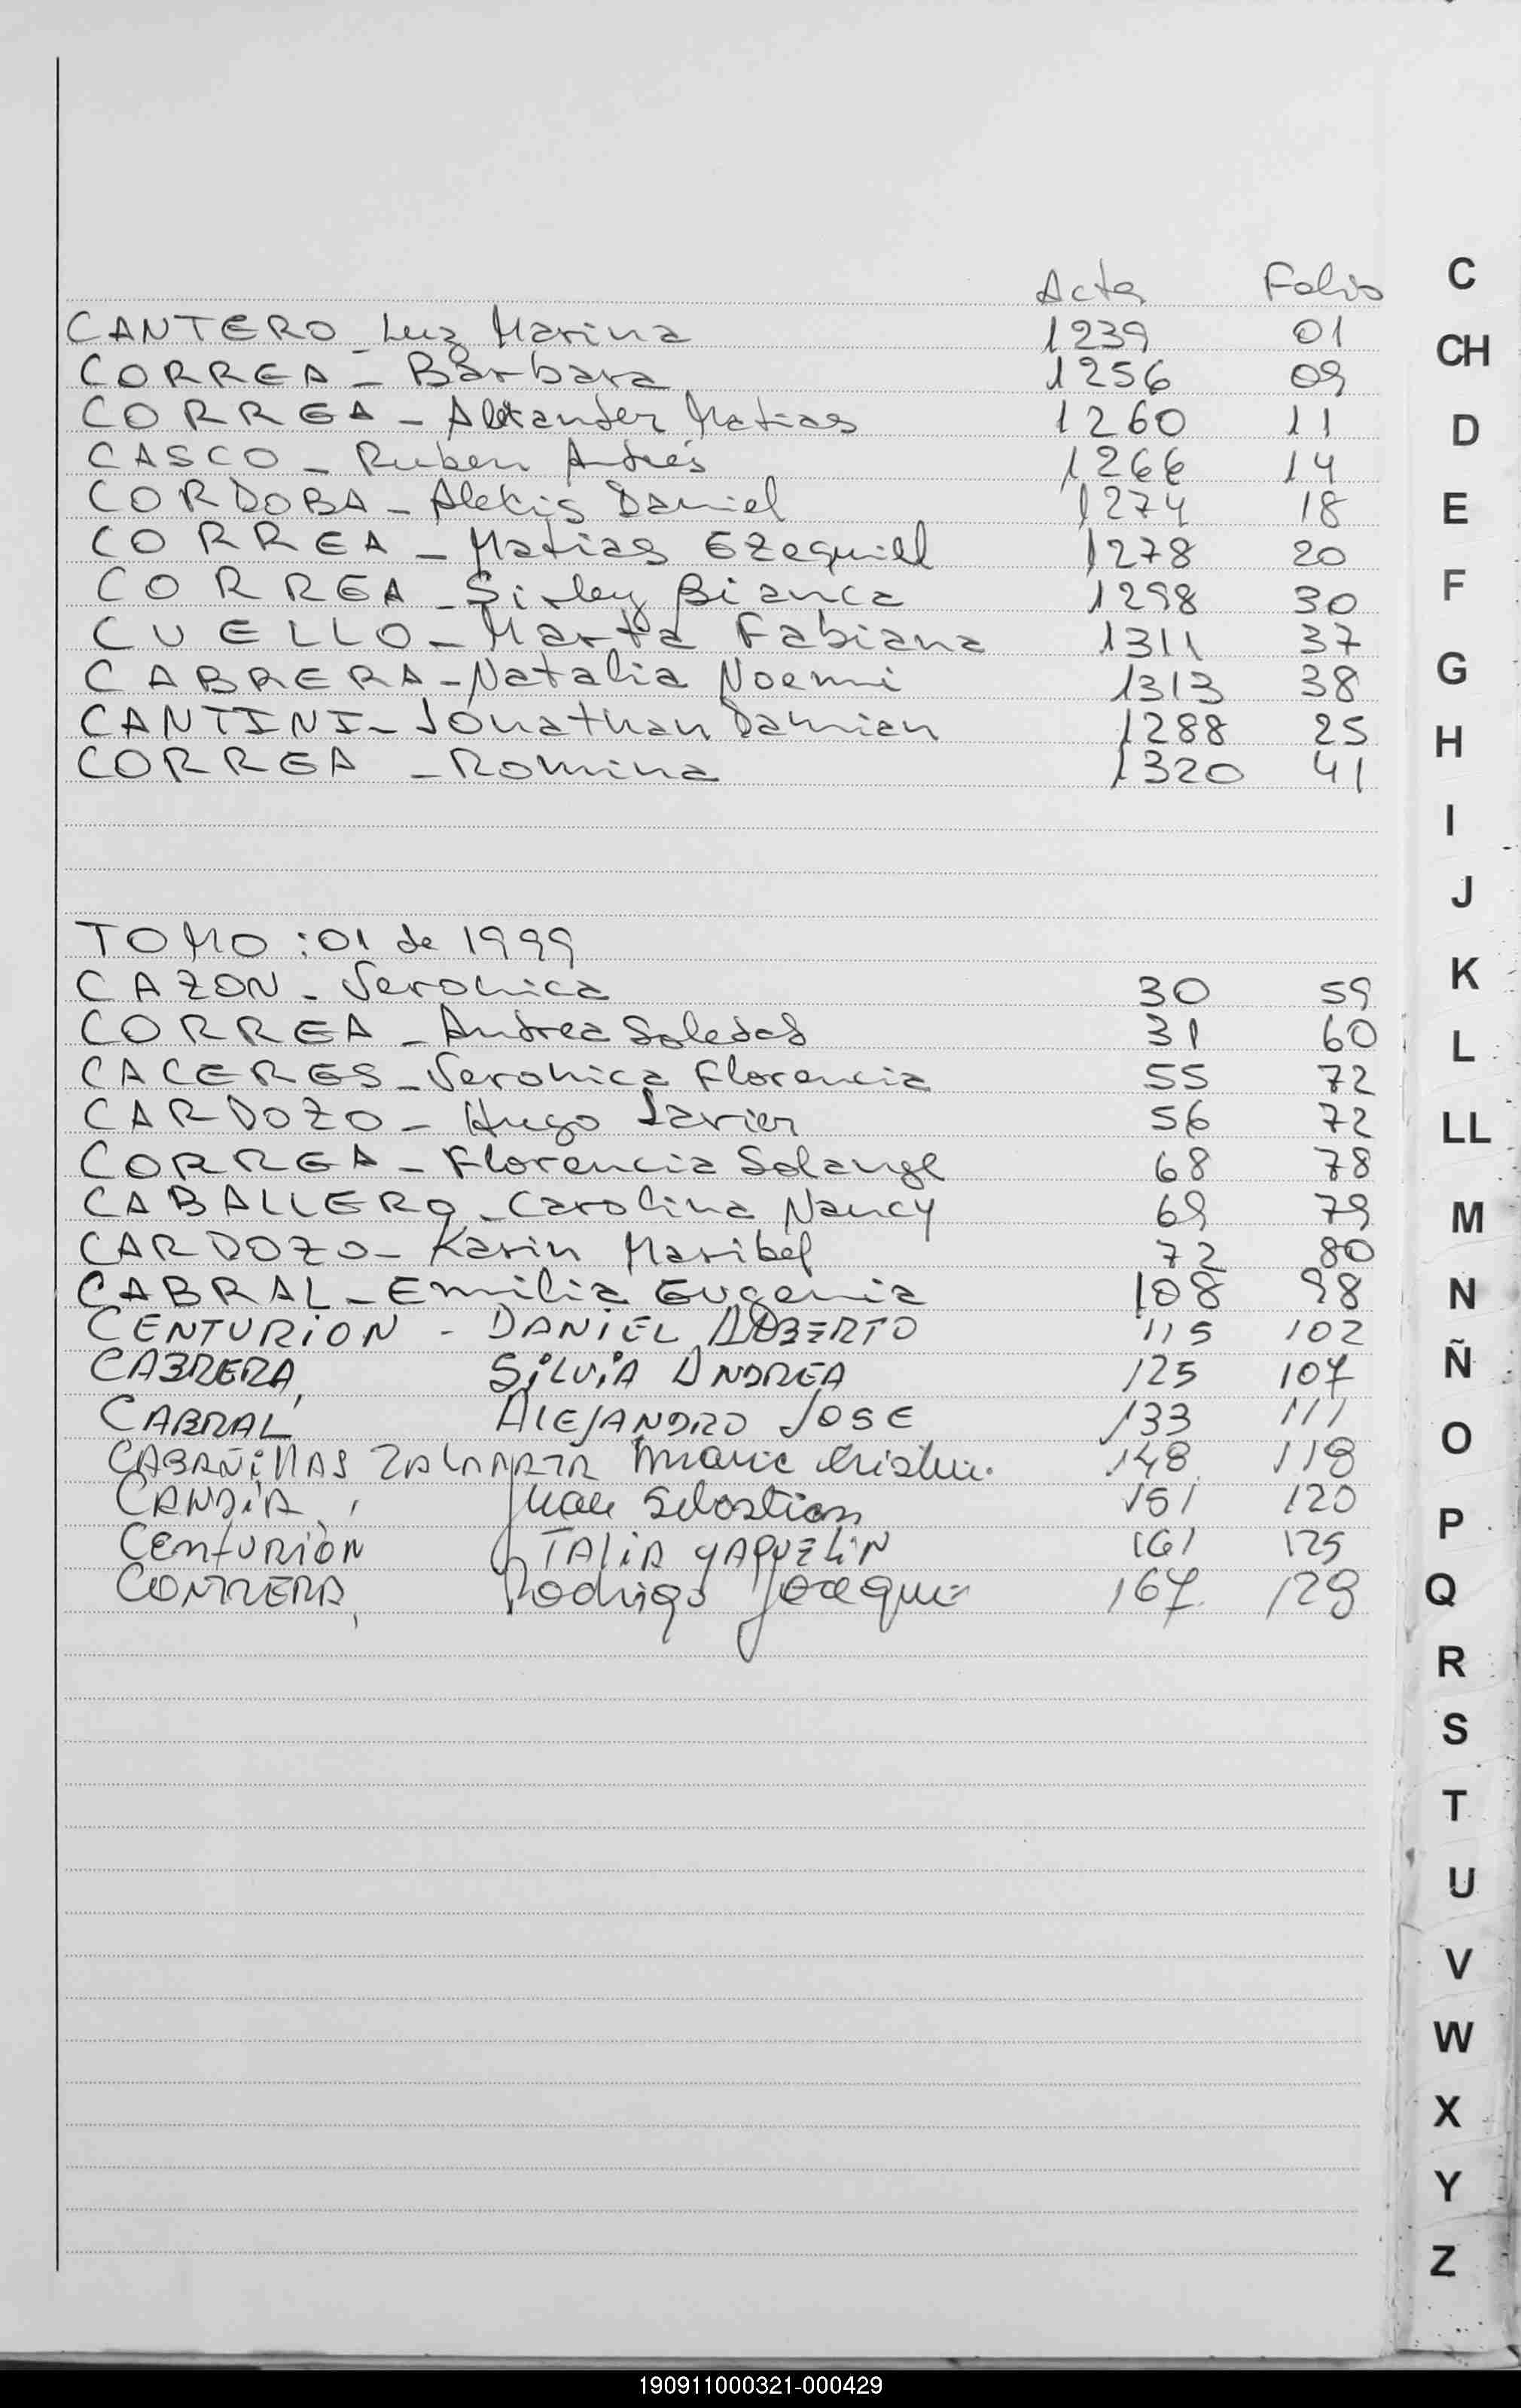 Acta Folio
CANTERO - Luz Marina 1239 01
CORREA - Barbara 1256 09
CORREA - Alexander Matias 1260 11
CASCO - Ruben Andrés 1266 14
CORDOBA - Alexis Daniel 1274 18
CORREA - Matias Ezequiel 1278 20
CORREA - Sirley Bianca 1298 30
CUELLO - Marta Fabiana 1311 37
CABRERA - Natalia Noemi 1313 38
CANTINI - Jonathan Damian 1288 25
CORREA - Romina 1320 41
TOMO : 01 de 1999
CAZON - Veronica 30 59
CORREA - Andrea Soledad 31 60
CACERES - Veronica Florencia 55 72
CARDOZO - Hugo Javier 56 72
CORREA - Florencia Solange 68 78
CABALLERO - Carolina Nancy 69 79
CARDOZO - Karin Maribel 72 80
CABRAL - Emilia Eugenia 108 98
CENTURION - DANIEL ALBERTO 115 102
CABRERA, SILVIA ANDREA 125 107
CABRAL, ALEJANDRO JOSE 133 111
CABAÑILLAS 148 118
CANDIA, Juan Sebastian 151 120
CENTURION TALIA YAQUELIN 161 125
CONTRERA, Rodrigo 167 128
C
CH
D
E
F
G
H
I
J
K
L
LL
M
N
Ñ
O
P
Q
R
S
T
U
V
W
X
Y
Z
190911000321-000429